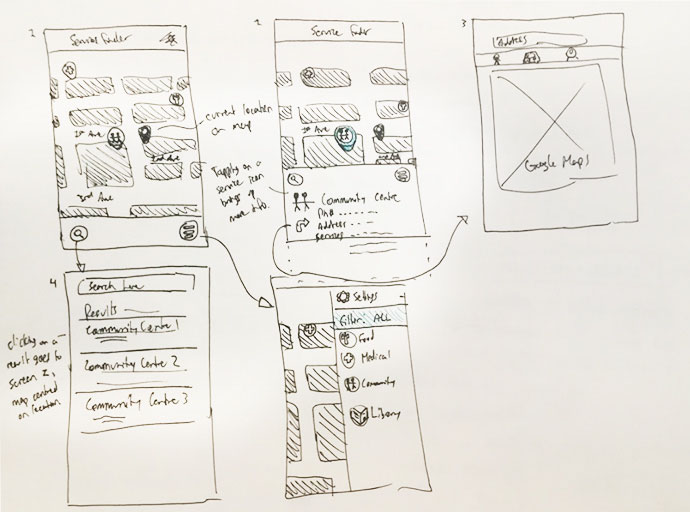 Service finder
1st Ave
2nd Ave
3rd Ave
current location
on map
Tapping on a
service icon
brings up
more info.
Service finder
1st Ave
Community Centre
Address
Services
3
Address
Google Maps
4
Search here
Results
Community Centre 1
Community Centre 2
Community Centre 3
clicking on a
result goes to
screen 2,
map centred
on location
Settings
Filter: ALL
Food
Medical
Community
Library